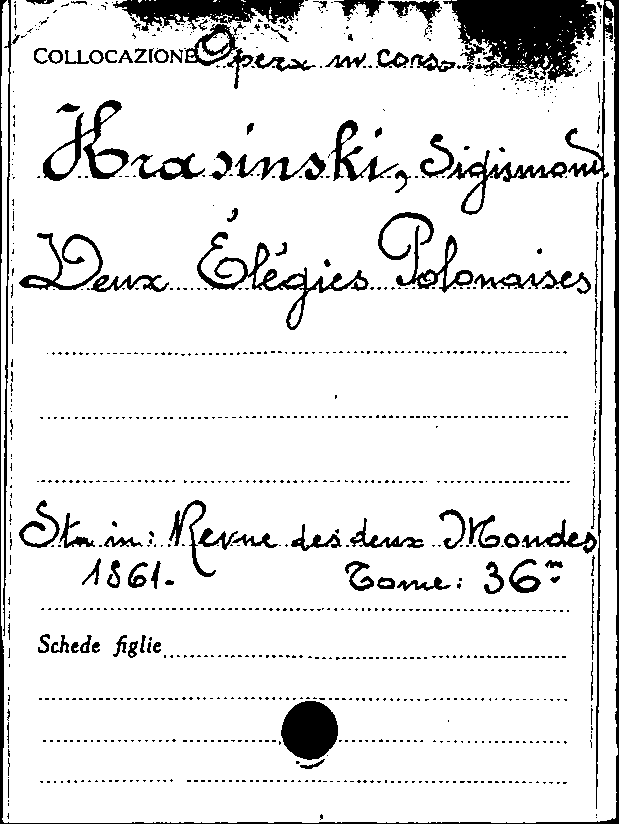 COLLOCAZIONE Opera in corso
Krasinski, Sigismond
Deux Élégies Polonaises
Sta in: Revue des deux Mondes
1861. Tome: 36
Schede figlie